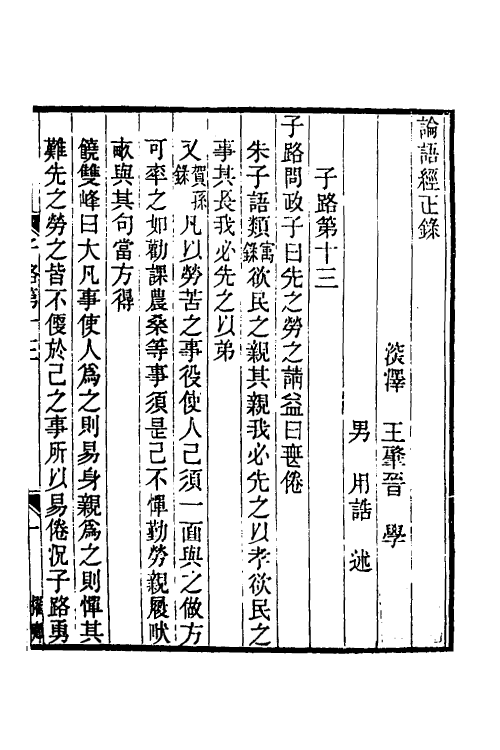 論語經正錄
淡澤 王肇晉 學
男 用誥 述
子路第十三
子路問政子曰先之勞之請益曰毋倦
朱子語類㝢錄欲民之親其親我必先之以孝欲民之
事其長我必先之以弟
又賀孫錄凡以勞苦之事役使人己須一面與之做方
可率之如勸課農桑等事須是己不憚勤勞親履畎
畝與其句當方得
饒雙峰曰大凡事使人爲之則易身親爲之則憚其
難先之勞之皆不便於己之事所以易倦況子路勇
子路第十三
一